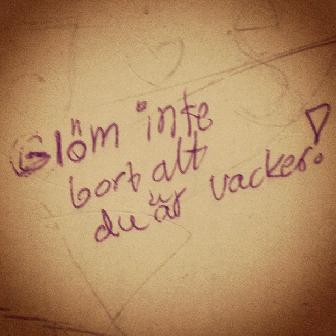 Glöm inte
bort alt
du är vacker!